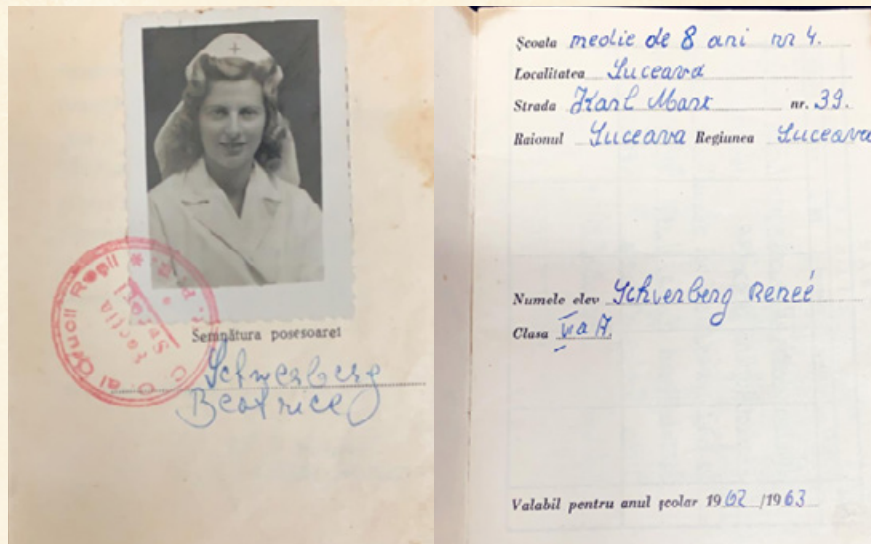 Semnătura posesoarei
Schwerberg
Beatrice
Școala medie de 8 ani nr 4.
Localitatea Suceava
Strada Karl Marx nr. 39.
Raionul Suceava Regiunea Suceava
Numele elev Schverberg Reneé
Clasa VIa A.
Valabil pentru anul școlar 1962/1963